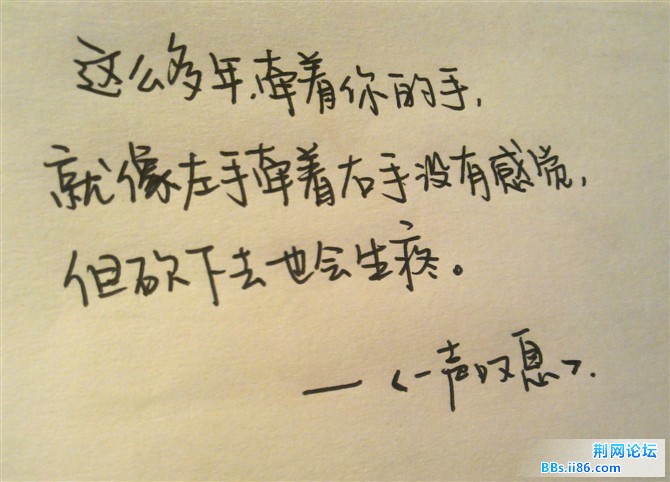 这么多年,牵着你的手,
就像左手牵着右手没有感觉,
但砍下去也会生疼。
—<一声叹息>.
荆网论坛
BBs.ii86.com